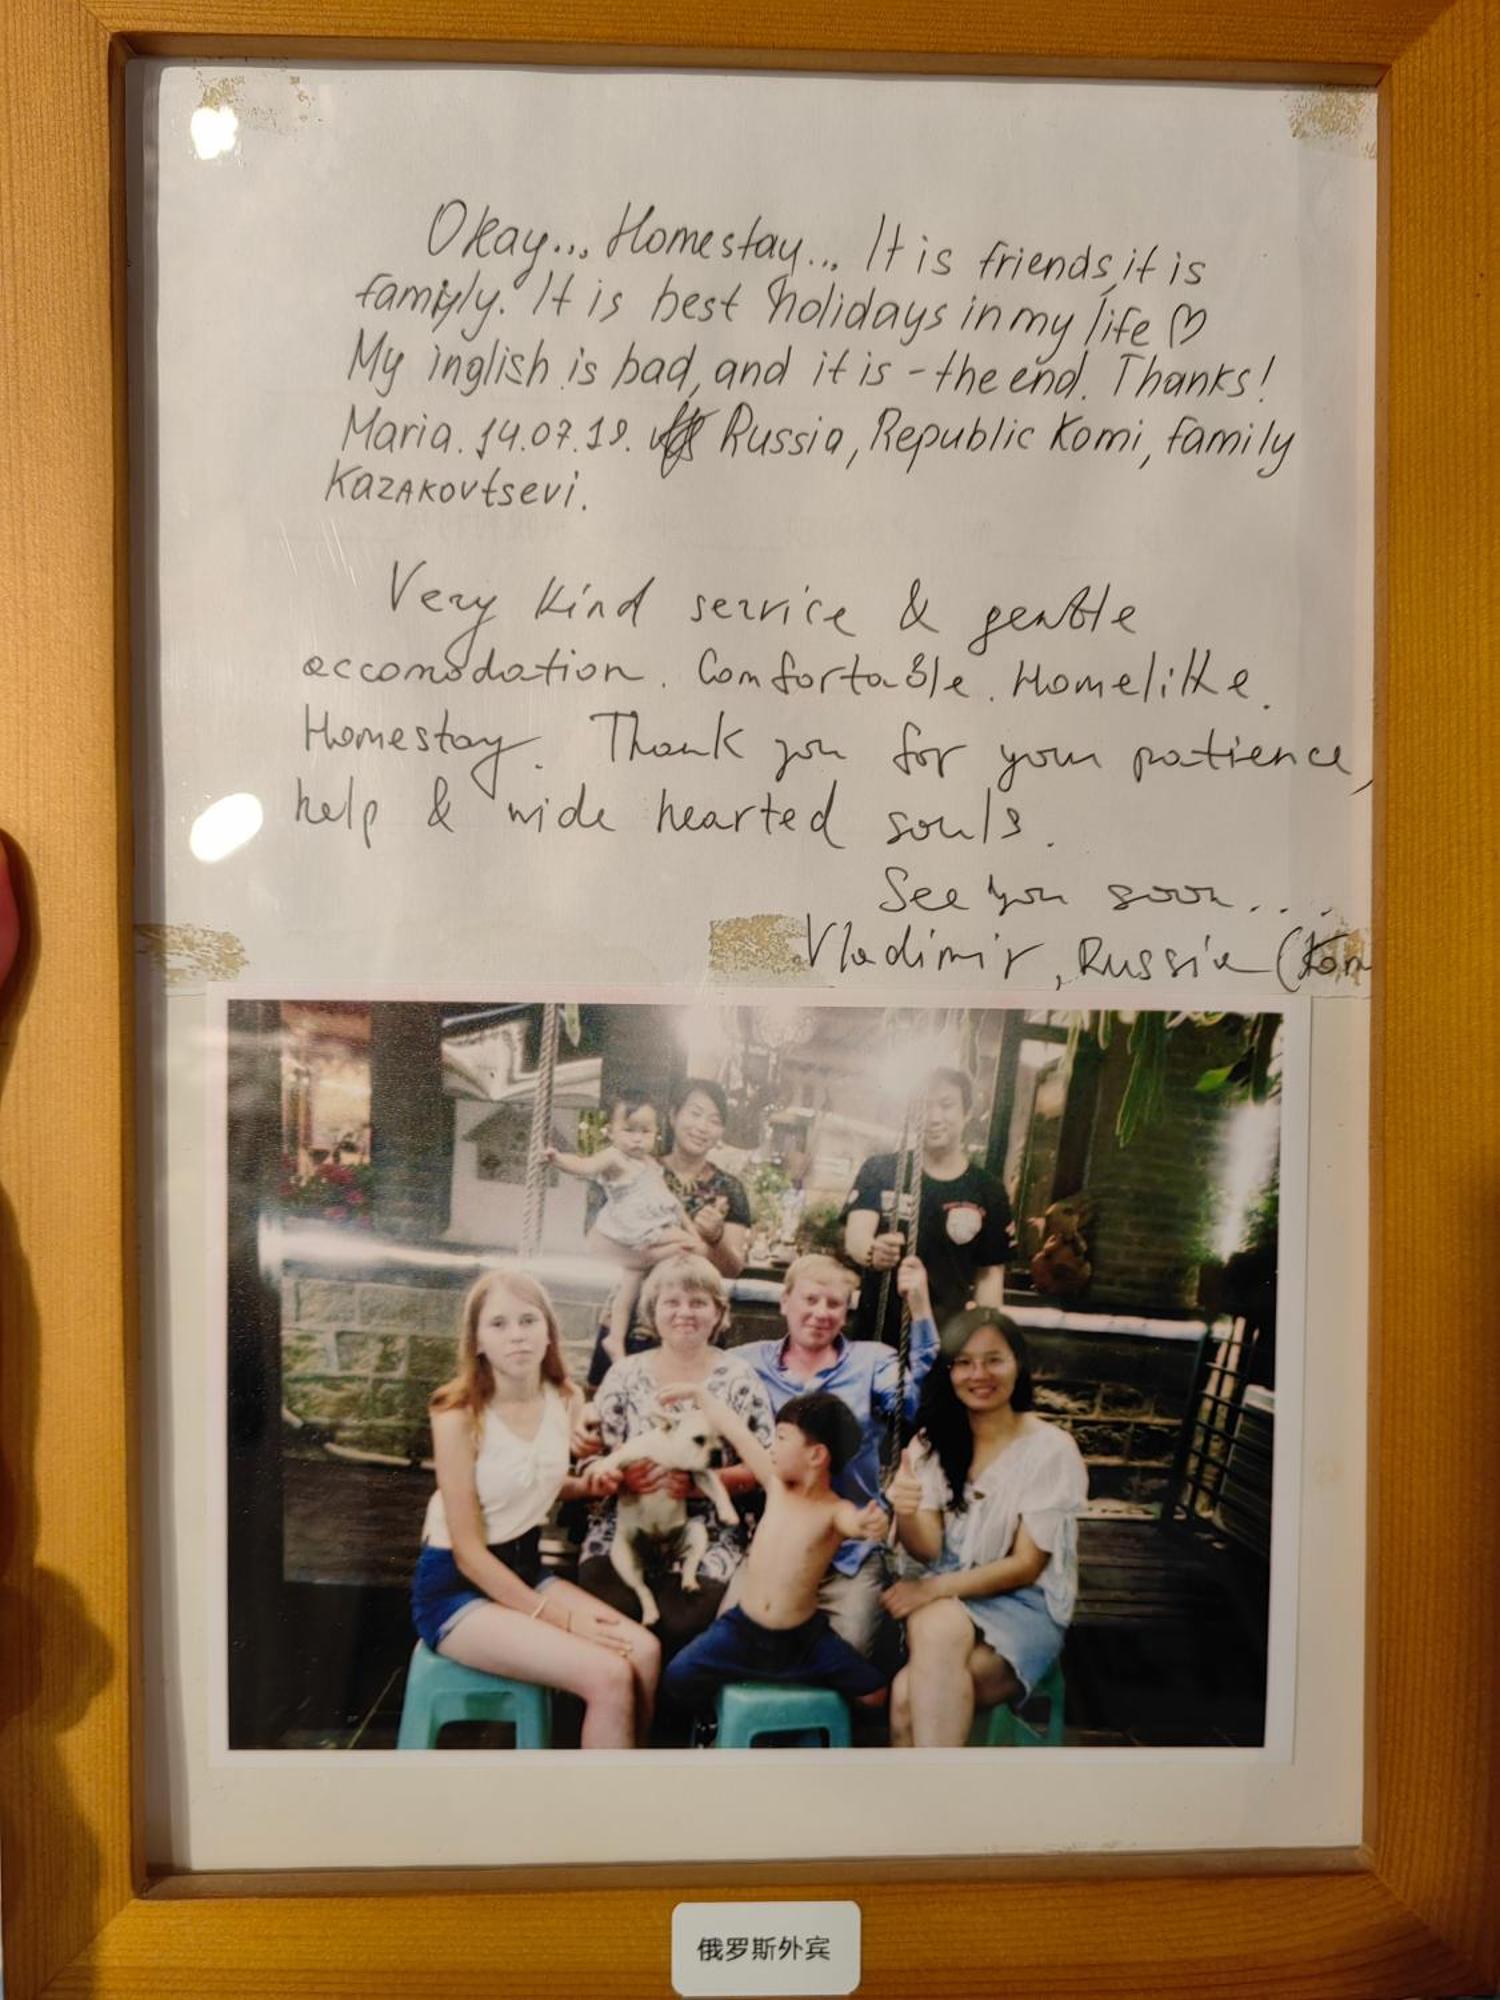 Okay... Homestay... It is friends, it is
family. It is best holidays in my life ♡
My inglish is bad, and it is - the end. Thanks!
Maria. 14.07.19. Russia, Republic Komi, family
Kazakovtsevi.
Very kind service & gentle
accomodation. Comfortable. Homelike.
Homestay. Thank you for your patience,
help & wide hearted souls.
See you soon....
Vladimir, Russia (Kom
俄罗斯外宾